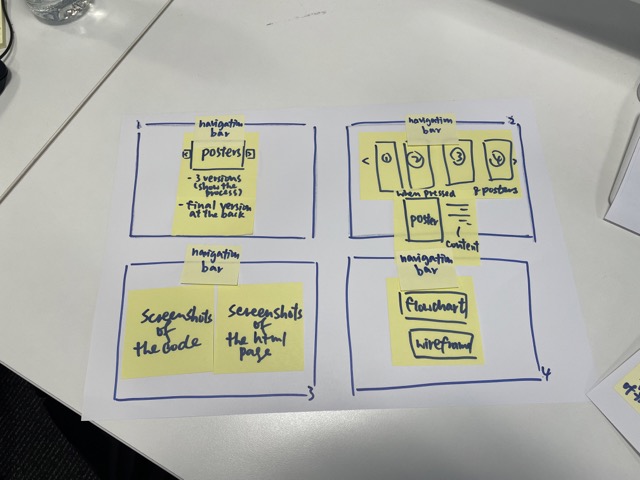 1
navigation
bar
< posters >
- 3 versions
(show the
process)
- final version
at the back
2
navigation
bar
< 1 2 3 4 >
when pressed
8 posters
poster
content
navigation
bar
screenshots
of
the code
screenshots
of
the html
page
3
navigation
bar
flowchart
wireframe
4